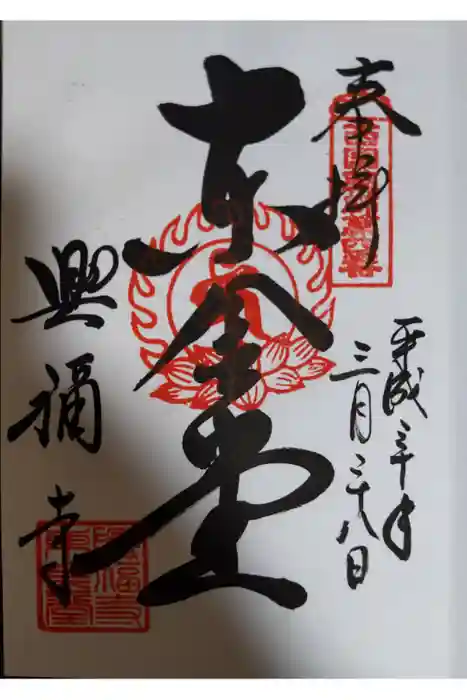 奉拝
平成三十年
三月二十八日
東金堂
興福寺